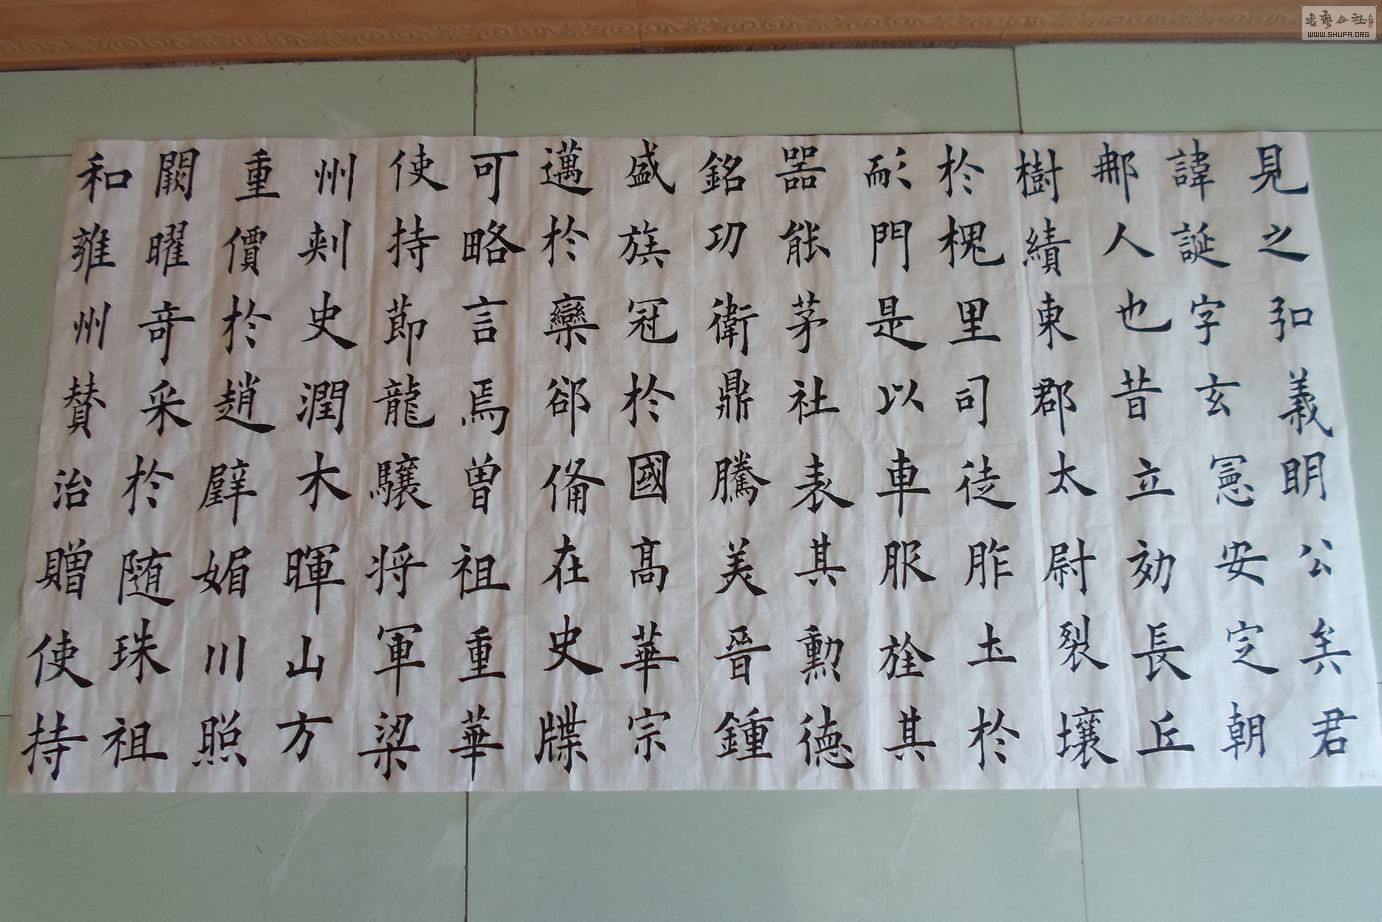 見之弘義明公矣君
諱誕字玄憲安定朝
那人也昔立効長丘
樹績東郡太尉裂壤
於槐里司徒胙土於
耏門是以車服旌其
器能茅社表其勳德
銘功衛鼎騰美晉鍾
盛族冠於國高華宗
邁於欒郤俻在史牒
可略言焉曽祖重華
使持節龍驤将軍梁
州刺史潤木暉山方
重價於趙璧媚川照
闕曜竒采於随珠祖
和雍州賛治贈使持
WWW.SHUFA.ORG